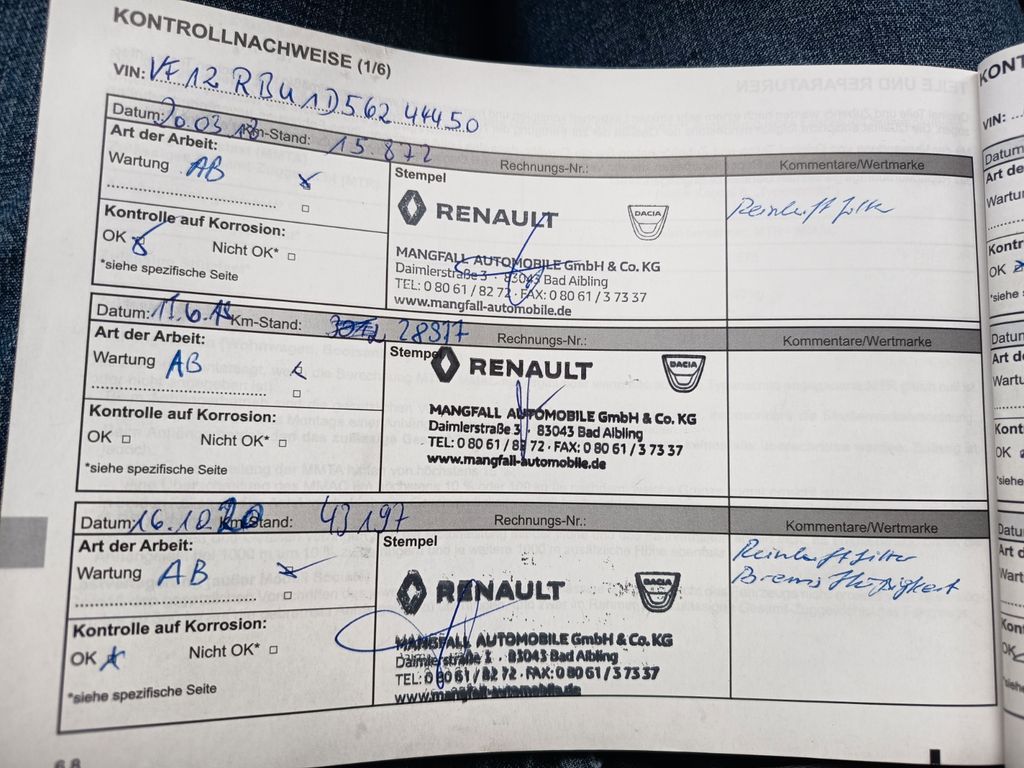 KONTROLLNACHWEISE (1/6)
VIN: VF12RBU1D56244450
Datum: 20.03.18 Km-Stand: 15.872 Rechnungs-Nr.: Kommentare/Wertmarke
Art der Arbeit:
Wartung AB
Stempel
RENAULT DACIA
Reinluftfilter
MANGFALL AUTOMOBILE GmbH & Co. KG
Daimlerstraße 3 · 83043 Bad Aibling
TEL: 0 80 61 / 82 72 · FAX: 0 80 61 / 3 73 37
www.mangfall-automobile.de
Kontrolle auf Korrosion:
OK Nicht OK*
*siehe spezifische Seite
Datum: 11.6.19 Km-Stand: 28377 Rechnungs-Nr.: Kommentare/Wertmarke
Art der Arbeit:
Wartung AB
Stempel
RENAULT DACIA
MANGFALL AUTOMOBILE GmbH & Co. KG
Daimlerstraße 3 · 83043 Bad Aibling
TEL: 0 80 61 / 82 72 · FAX: 0 80 61 / 3 73 37
www.mangfall-automobile.de
Kontrolle auf Korrosion:
OK Nicht OK*
*siehe spezifische Seite
Datum: 16.10.20 Km-Stand: 43197 Rechnungs-Nr.: Kommentare/Wertmarke
Art der Arbeit:
Wartung AB
Stempel
RENAULT DACIA
Reinluftfilter
Bremsflüssigkeit
MANGFALL AUTOMOBILE GmbH & Co. KG
Daimlerstraße 3 · 83043 Bad Aibling
TEL: 0 80 61 / 82 72 · FAX: 0 80 61 / 3 73 37
www.mangfall-automobile.de
Kontrolle auf Korrosion:
OK Nicht OK*
*siehe spezifische Seite
TEILE UND REPARATUREN
VIN:
OK